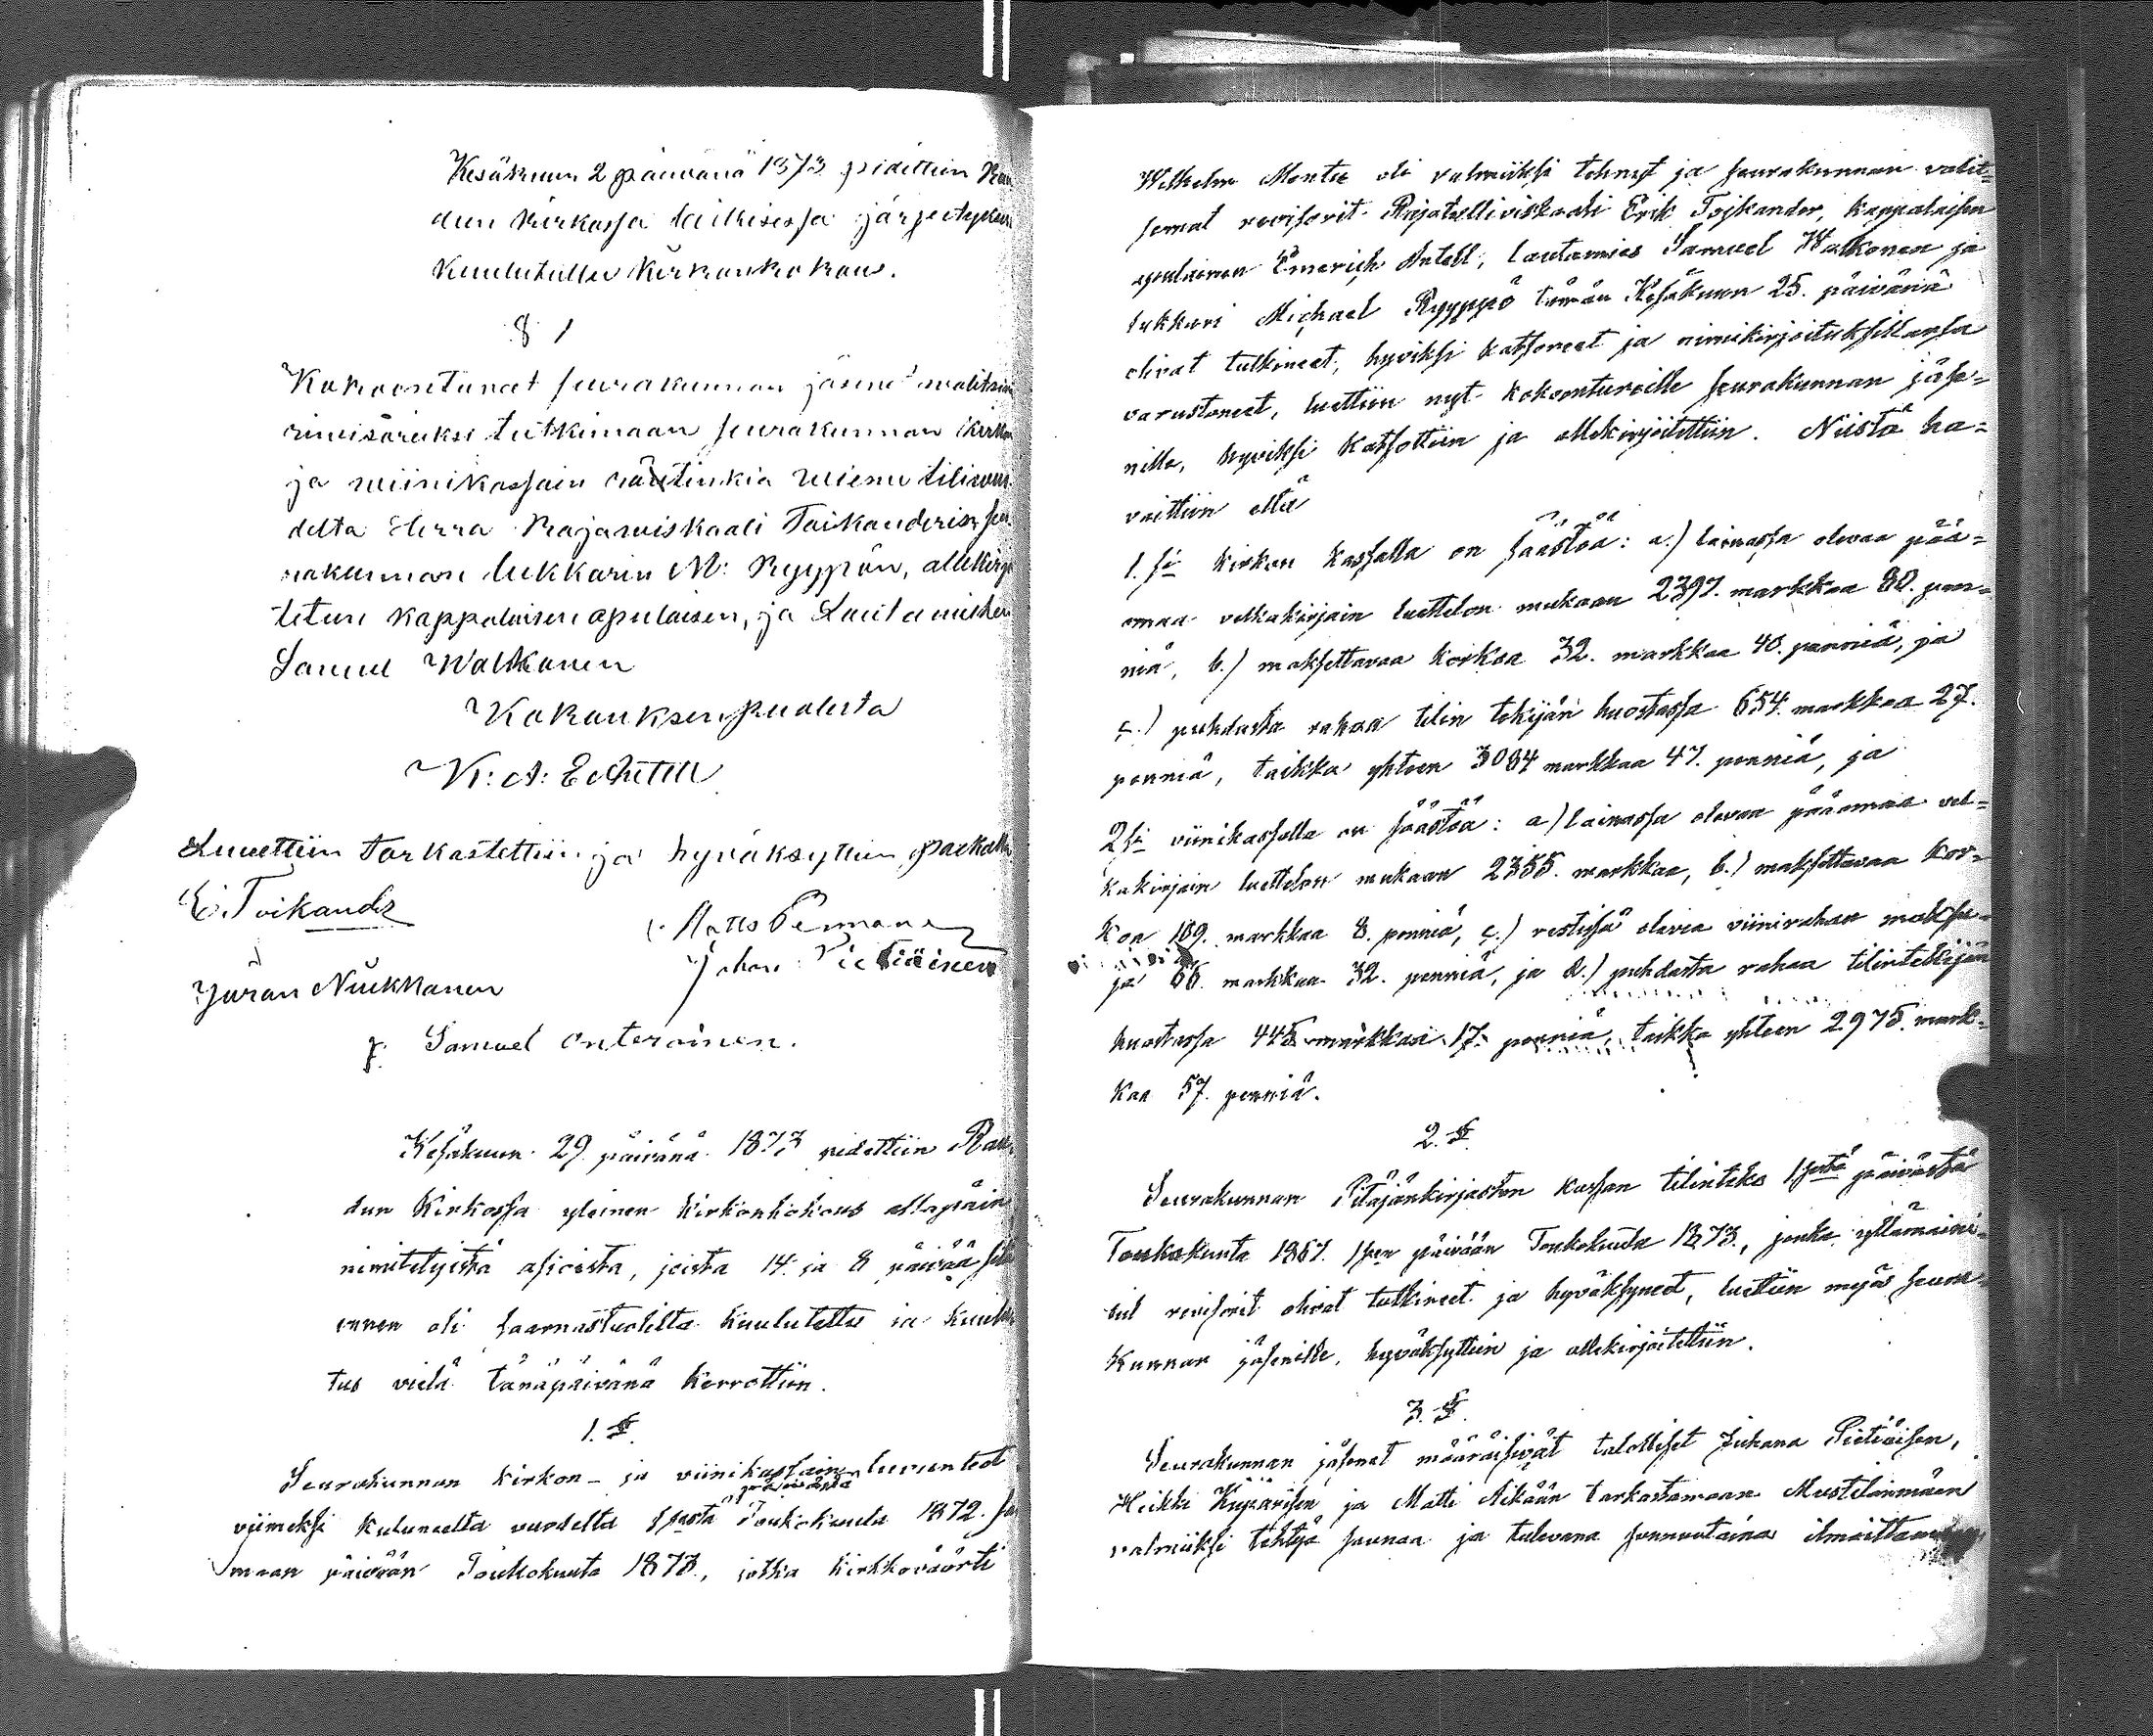 Kesäkuun 2 päivänä 1873 pidettiin Rau
dun kirkossa laillisessa järjestyksessä
kuulutettu kirkonkokous.
§ 1
Kokoontuneet seurakunnan jäsenet valitsivat
reivisoriksi tutkimaan seurakunnan kirkon
ja viinikassain räntinkiä viime tilivuo
delta Herra Rajaviskaali Toikanderin, seu
rakunnan lukkarin M: Ryypön, allekirjoi
tetun Kappalaisen apulaisen, ja Lautamiehen
Samuel Walkonen
Kokouksen puolesta
Luettiin tarkastettiin ja hyväksyttiin paikalla
E. Toikander
Matts Pennanen
Johan Pietiäinen
Jüran Nuckkanen
Samuel Onteroinen.
Kesäkuun 29 päivänä 1873 pidettiin Rau
dun Kirkossa yleinen kirkonkokous allapäin
nimitetyistä asioista, joista 14. ja 8 päivää sitä
ennen oli saarnastuolilta kuulutettu ja kuulu
tus vielä tänäpäivänä kerrottiin.
1. §.
Seurakunnan kirkon- ja viinikassain luvunteot
viimeksi kuluneelta vuodelta 1 sestä päivästä Toukokuuta 1872. sa
maan päivään Toukokuuta 1873., jotka kirkkoväärti
Wilhelm Montu oli valmiiksi tehnyt ja seurakunnan valit=
semat revisorit Rajatulliviskaali Erik Tojkander, kappalaisen
apulainen Emerich Antell, lautamies Samuel Walkonen ja
lukkari Michael Ryyppö tämän Kesäkuun 25. päivänä
olivat tutkineet, hyviksi katsoneet ja nimikirjoituksillansa
varustaneet, luettiin nyt kokoontuneille seurakunnan jäse=
nille, hyviksi katsottiin ja allekirjoitettiin. Niistä ha=
vaittiin että
1. si kirkon kassalla on säästöä: a.) lainassa olevaa pää=
omaa velkakirjain luettelon mukaan 2397. markkaa 80. pen=
niä, b.) maksettavaa korkoa 32. markkaa 40. penniä, ja
c.) puhdasta rahaa tilin tekijän huostassa 654. markkaa 27.
penniä, taikka yhteen 3084 markkaa 47. penniä, ja
2 si viinikassalla on säästöä: a) lainassa olevaa pääomaa vel=
kakirjain luettelon mukaan 2355. markkaa, b.) maksettavaa kor=
koa 109. markkaa 8. penniä, c.) restissä olevia viinirahan maksu=
ja 66. markkaa 32. penniä, ja d.) puhdasta rahaa tilintekijän
huostassa 445 markkaa 17. penniä, taikka yhteen 2975. mark=
kaa 57. penniä.
2. §.
Seurakunnan Pitäjänkirjaston kassan tilinteko 1 sestä päivästä
Toukokuuta 1867. 1 sen päivään Toukokuuta 1873., jonka yllämaini=
tut revisorit olivat tutkineet ja hyväksyneet, luettiin myös seura=
kunnan jäsenille, hyväksyttiin ja allekirjoitettiin.
3. §.
Seurakunnan jäsenet määräisivät talolliset Juhana Pietiäisen,
Heikki Kiiveräisen ja Matti Aikään tarkastamaan Mustilanmäen
valmiiksi tehtyä saunaa ja tulevana sunnuntaina ilmoittamaan